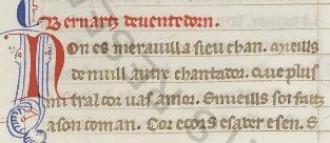 Bernartz deuentedorn.
Non es merauilla sieu chan. Qmeills
de nuill autre chantador. Que plus
mi tral cor uas amor. Emeills soi faitz
a son coman. Cor e cors e saber e sen. E